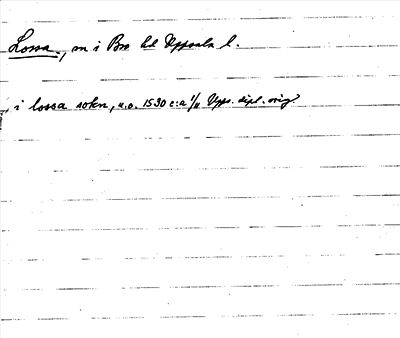 Lossa, sn i Bro hd Uppsala l.
i lossa sokn, u.o. 1530 c:a 1/11 Upps. dipl. orig.